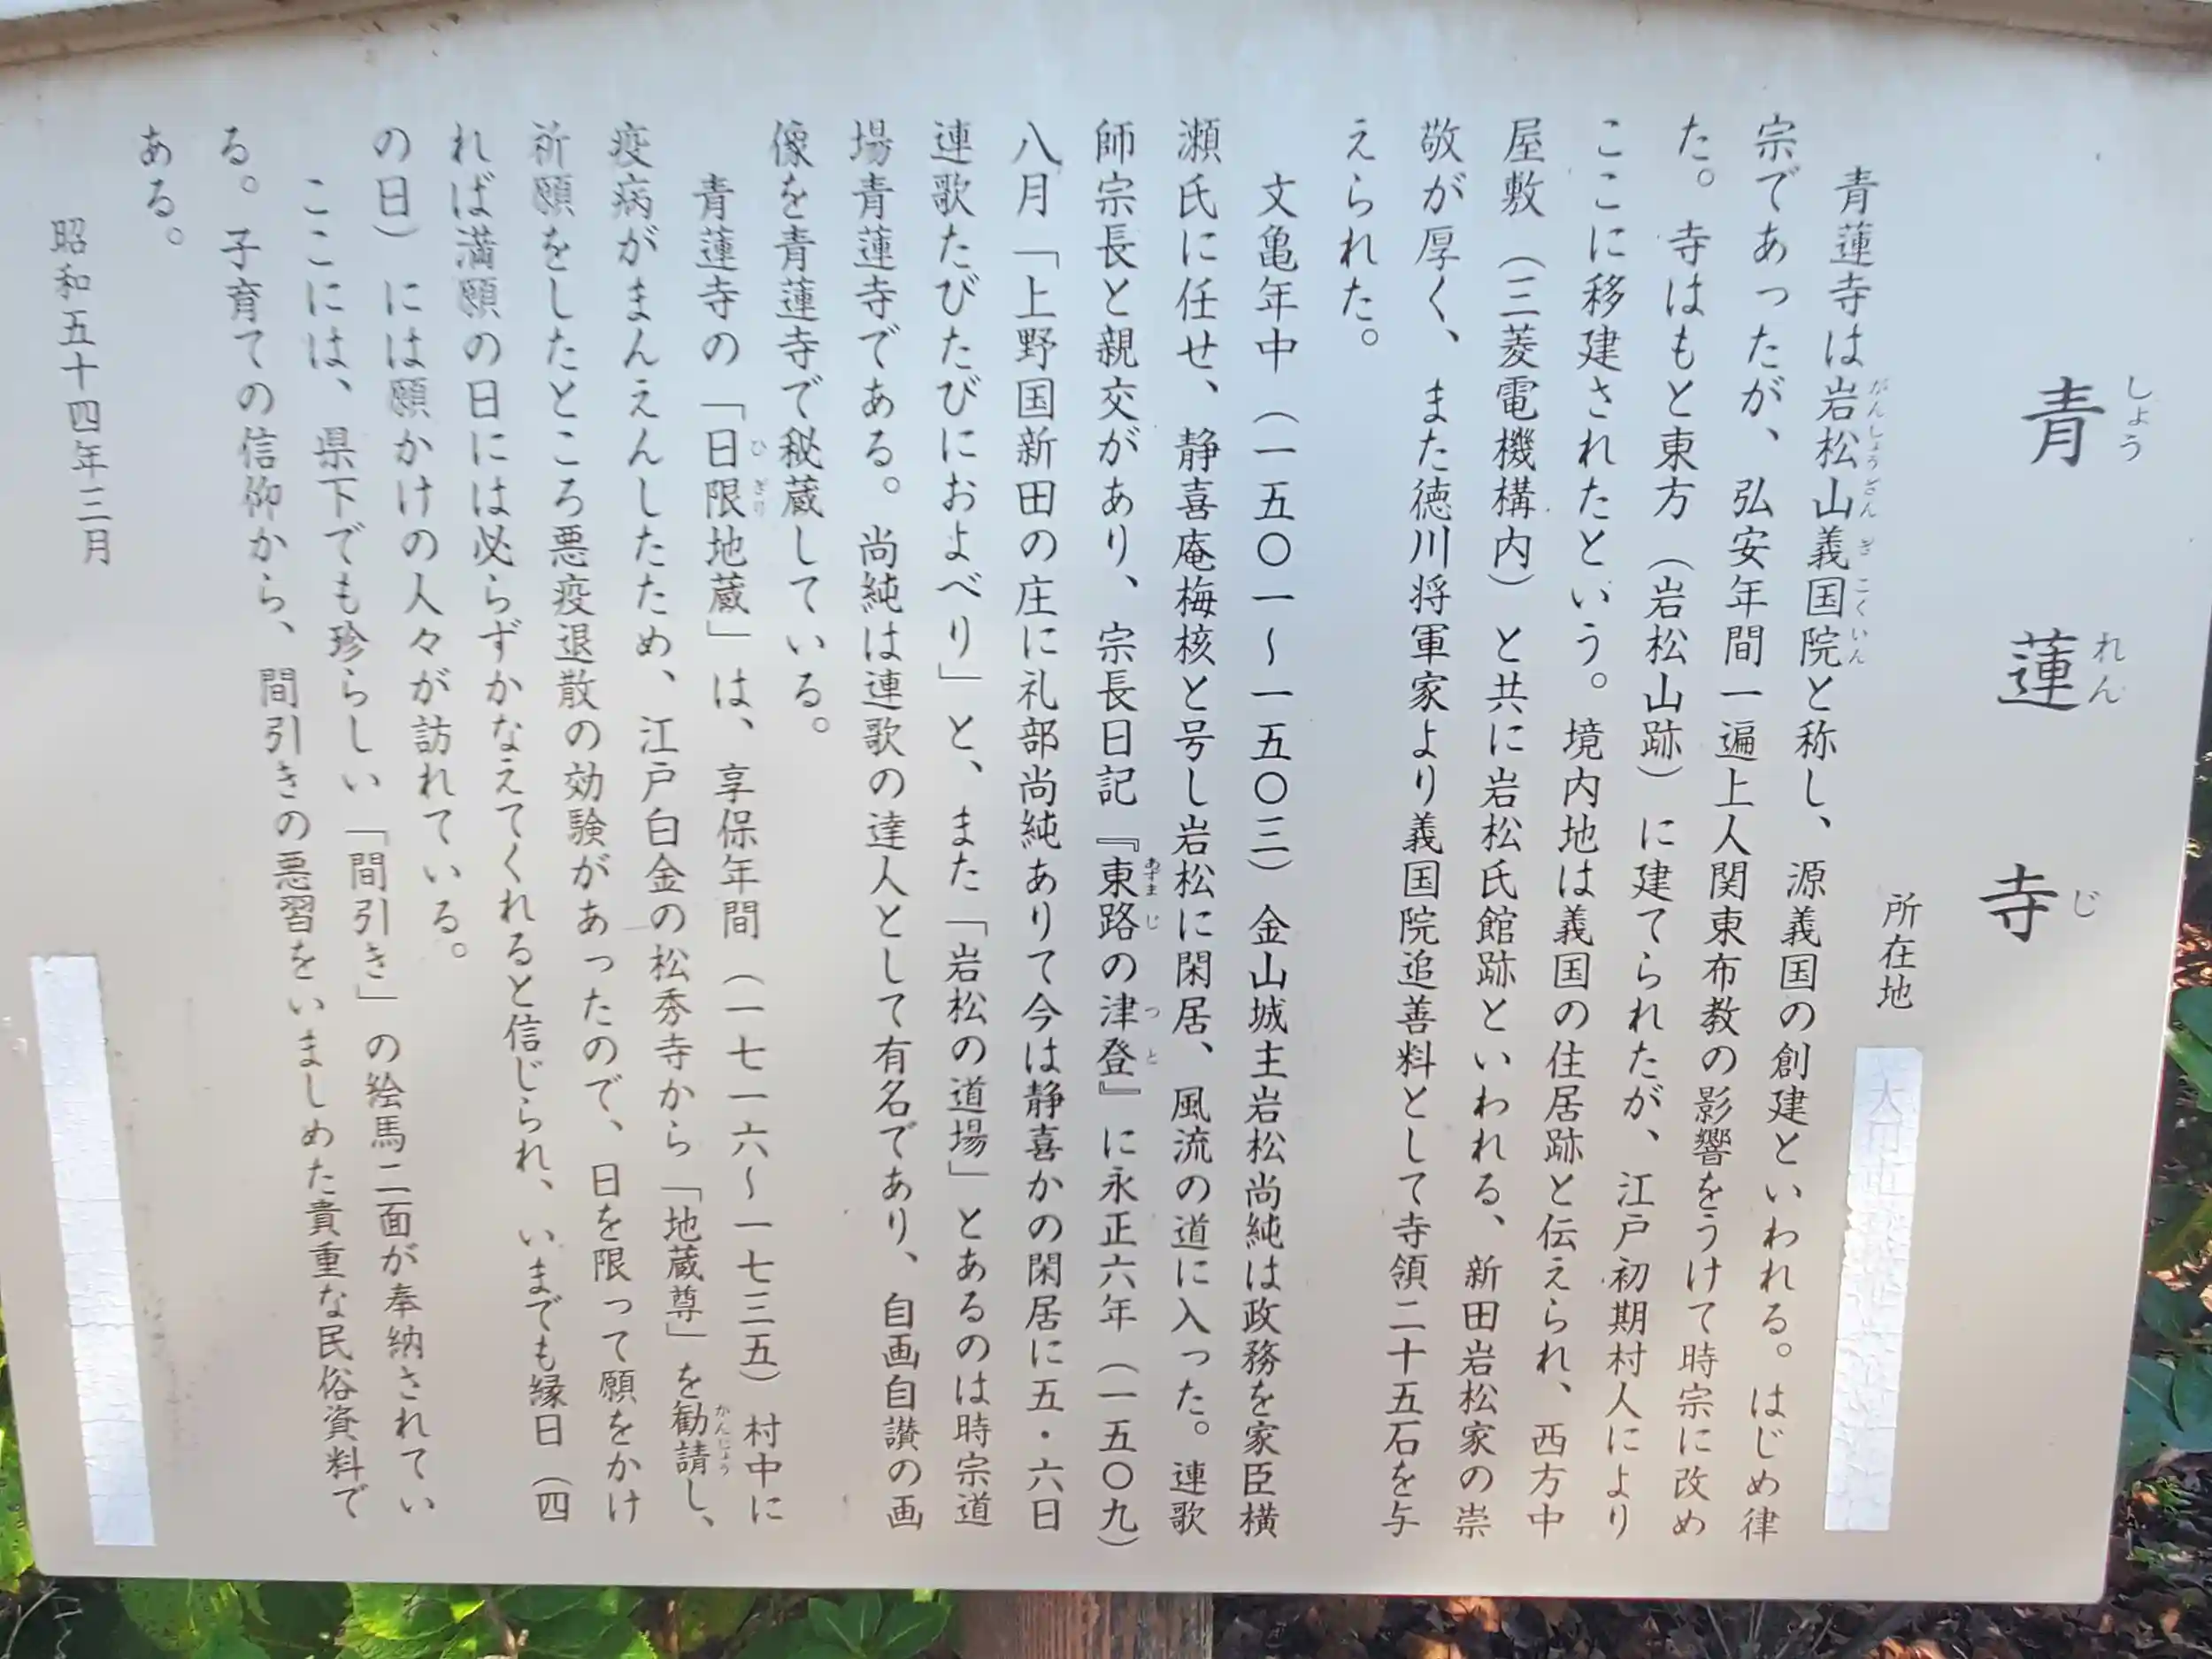 青蓮寺
しょうれんじ
所在地
青蓮寺は岩松山義国院と称し、源義国の創建といわれる。はじめ律
がんしょうざんぎこくいん
宗であったが、弘安年間一遍上人関東布教の影響をうけて時宗に改め
た。寺はもと東方（岩松山跡）に建てられたが、江戸初期村人により
ここに移建されたという。境内地は義国の住居跡と伝えられ、西方中
屋敷（三菱電機構内）と共に岩松氏館跡といわれる、新田岩松家の崇
敬が厚く、また徳川将軍家より義国院追善料として寺領二十五石を与
えられた。
文亀年中（一五〇一〜一五〇三）金山城主岩松尚純は政務を家臣横
瀬氏に任せ、静喜庵梅核と号し岩松に閑居、風流の道に入った。連歌
師宗長と親交があり、宗長日記『東路の津登』に永正六年（一五〇九）
あずまじ つと
八月「上野国新田の庄に礼部尚純ありて今は静喜かの閑居に五・六日
連歌たびたびにおよべり」と、また「岩松の道場」とあるのは時宗道
場青蓮寺である。尚純は連歌の達人として有名であり、自画自讃の画
像を青蓮寺で秘蔵している。
青蓮寺の「日限地蔵」は、享保年間（一七一六〜一七三五）村中に
ひぎり
疫病がまんえんしたため、江戸白金の松秀寺から「地蔵尊」を勧請し、
かんじょう
祈願をしたところ悪疫退散の効験があったので、日を限って願をかけ
れば満願の日には必らずかなえてくれると信じられ、いまでも縁日（四
の日）には願かけの人々が訪れている。
ここには、県下でも珍らしい「間引き」の絵馬二面が奉納されてい
る。子育ての信仰から、間引きの悪習をいましめた貴重な民俗資料で
ある。
昭和五十四年三月